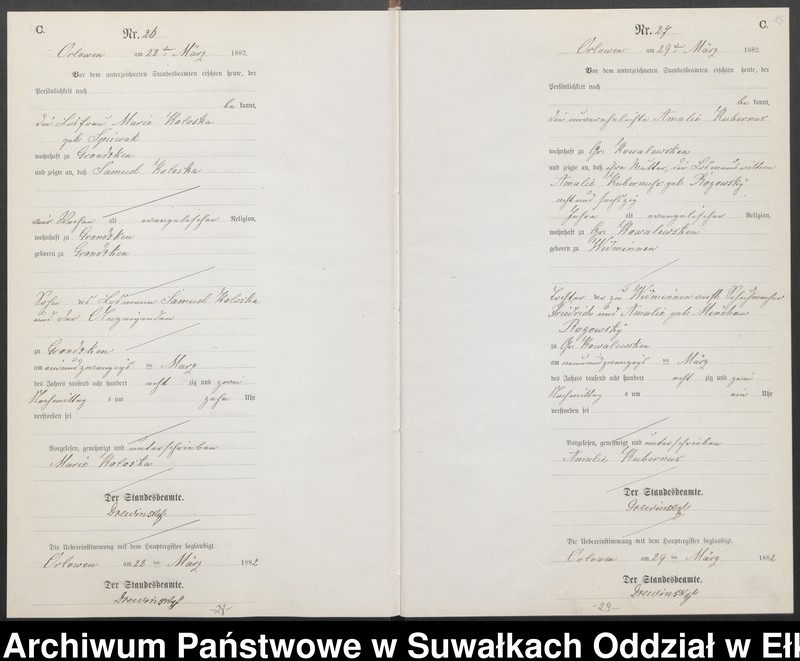 C.
Nr. 26
Orlowen am 22 ten März 1882.
Vor dem unterzeichneten Standesbeamten erschien heute, der
Persönlichkeit nach
be kannt,
die Losfrau Marie Koloska
geb. Spiewak
wohnhaft zu Grondzken
und zeigte an, daß Samuel Koloska
vier Wochen alt evangelischer Religion,
wohnhaft zu Grondzken
geboren zu Grondzken
Sohn des Losmann Samuel Koloska
und der Anzeigenden
zu Grondzken
am einundzwanzigsten März
des Jahres tausend acht hundert acht zig und zwei
Nachmittag s um zehn Uhr
verstorben sei
Vorgelesen, genehmigt und unterschrieben
Marie Koloska
Der Standesbeamte.
Drewinski
Die Uebereinstimmung mit dem Hauptregister beglaubigt
Orlowen am 22 ten März 1882
Der Standesbeamte.
Drewinski
C.
Nr. 27
Orlowen am 29 ten März 1882.
Vor dem unterzeichneten Standesbeamten erschien heute, der
Persönlichkeit nach
be kannt,
die unverehelichte Amalie Kubernus
wohnhaft zu Gr. Kowalewsken
und zeigte an, daß ihre Mutter, die Losmannswittwe
Amalie Kubernus geb. Rogowsky
acht und sechszig
Jahre alt evangelischer Religion,
wohnhaft zu Gr. Kowalewsken
geboren zu Widminnen
Tochter des zu Widminnen verst. Schuhmacher
Friedrich und Amalie geb.
Rogowsky
zu Gr. Kowalewsken
am neunundzwanzigsten März
des Jahres tausend acht hundert acht zig und zwei
Nachmittag s um ein Uhr
verstorben sei
Vorgelesen, genehmigt und unterschrieben
Amalie Kubernus
Der Standesbeamte.
Drewinski
Die Uebereinstimmung mit dem Hauptregister beglaubigt.
Orlowen am 29 ten März 1882
Der Standesbeamte.
Drewinski
-29-
Archiwum Państwowe w Suwałkach Oddział w Ełk